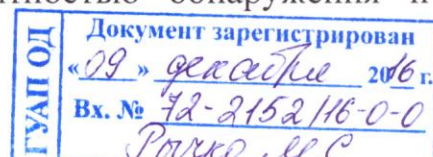 обнаружения и
ГУАП ОД
Документ зарегистрирован
«09» декабря 2016 г.
Вх. № 72-2152/16-0-0